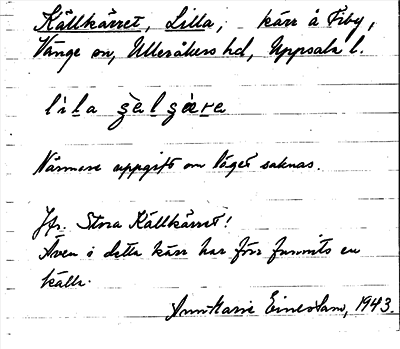 Källkärret, Lilla, kärr å Fiby,
Vänge sn, Ulleråkers hd, Uppsala l.
lila
Närmare uppgift om läget saknas.
Jfr. Stora Källkärret!
Även i detta kärr har förr funnits en
källa.
Ann-Marie 1943.